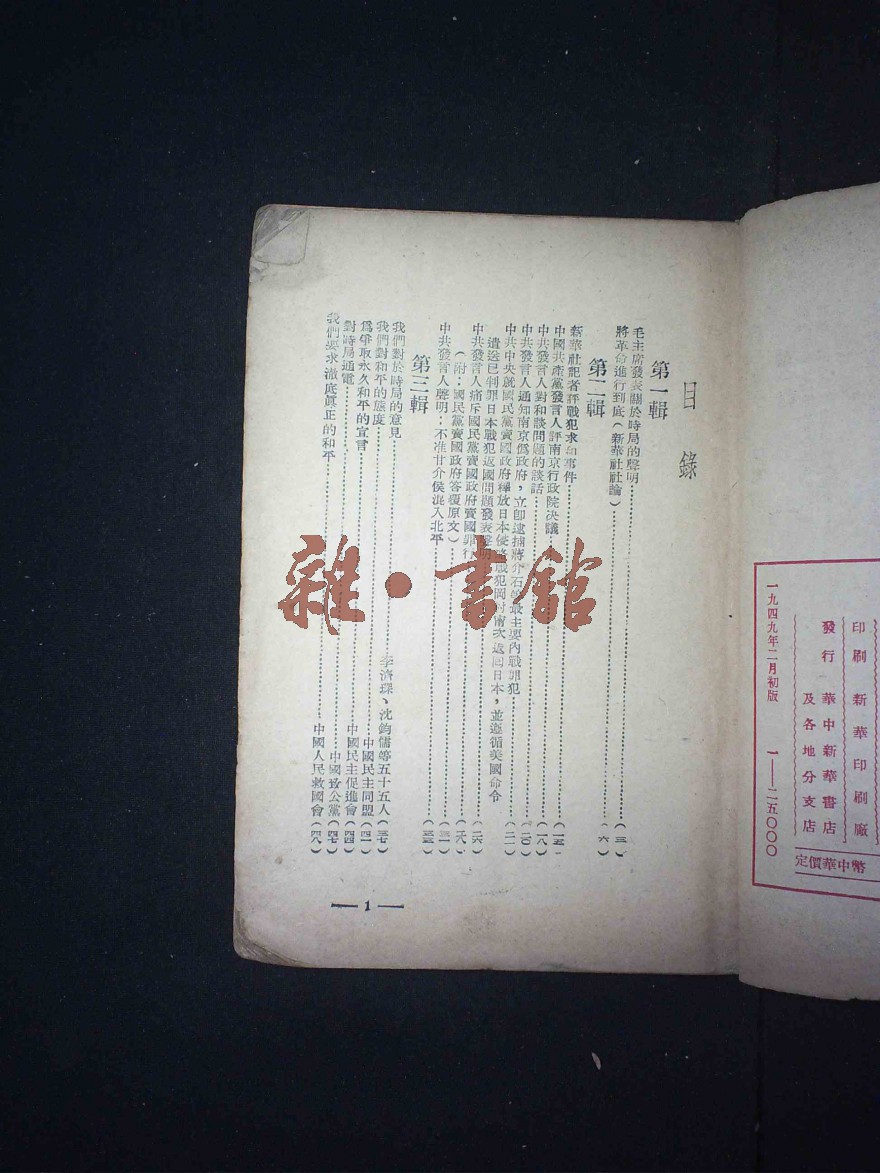 印刷 新華印刷廠
發行 華中新華書店
及各地分支店
一九四九年二月初版 一—二五〇〇〇
定價華中幣
目錄
第一輯
毛主席發表關於時局的聲明 (三)
將革命進行到底(新華社社論) (六)
第二輯
新華社記者評戰犯求和事件 (一五)
中國共產黨發言人評南京行政院决議 (一八)
中共發言人對和談問題的談話 (二〇)
中共發言人通知南京僞政府,立卽逮捕蔣介石等最主要內戰罪犯 (二一)
中共中央就國民黨賣國政府釋放日本侵略戰犯岡村甯次
遣送已判罪日本戰犯返國問題發表聲明
返回日本,並遵循美國命令
中共發言人痛斥國民黨賣國政府賣國罪行
(附:國民黨賣國政府答覆原文)
中共發言人聲明:不准甘介侯混入北平
第三輯
我們對於時局的意見 李濟琛、沈鈞儒等五十五人(三七)
我們對和平的態度 中國民主同盟(四一)
爲爭取永久和平的宣言 中國民主促進會(四四)
對時局通電 中國致公黨(四七)
我們要求澈底眞正的和平 中國人民救國會(四八)
— 1 —
雜·書館